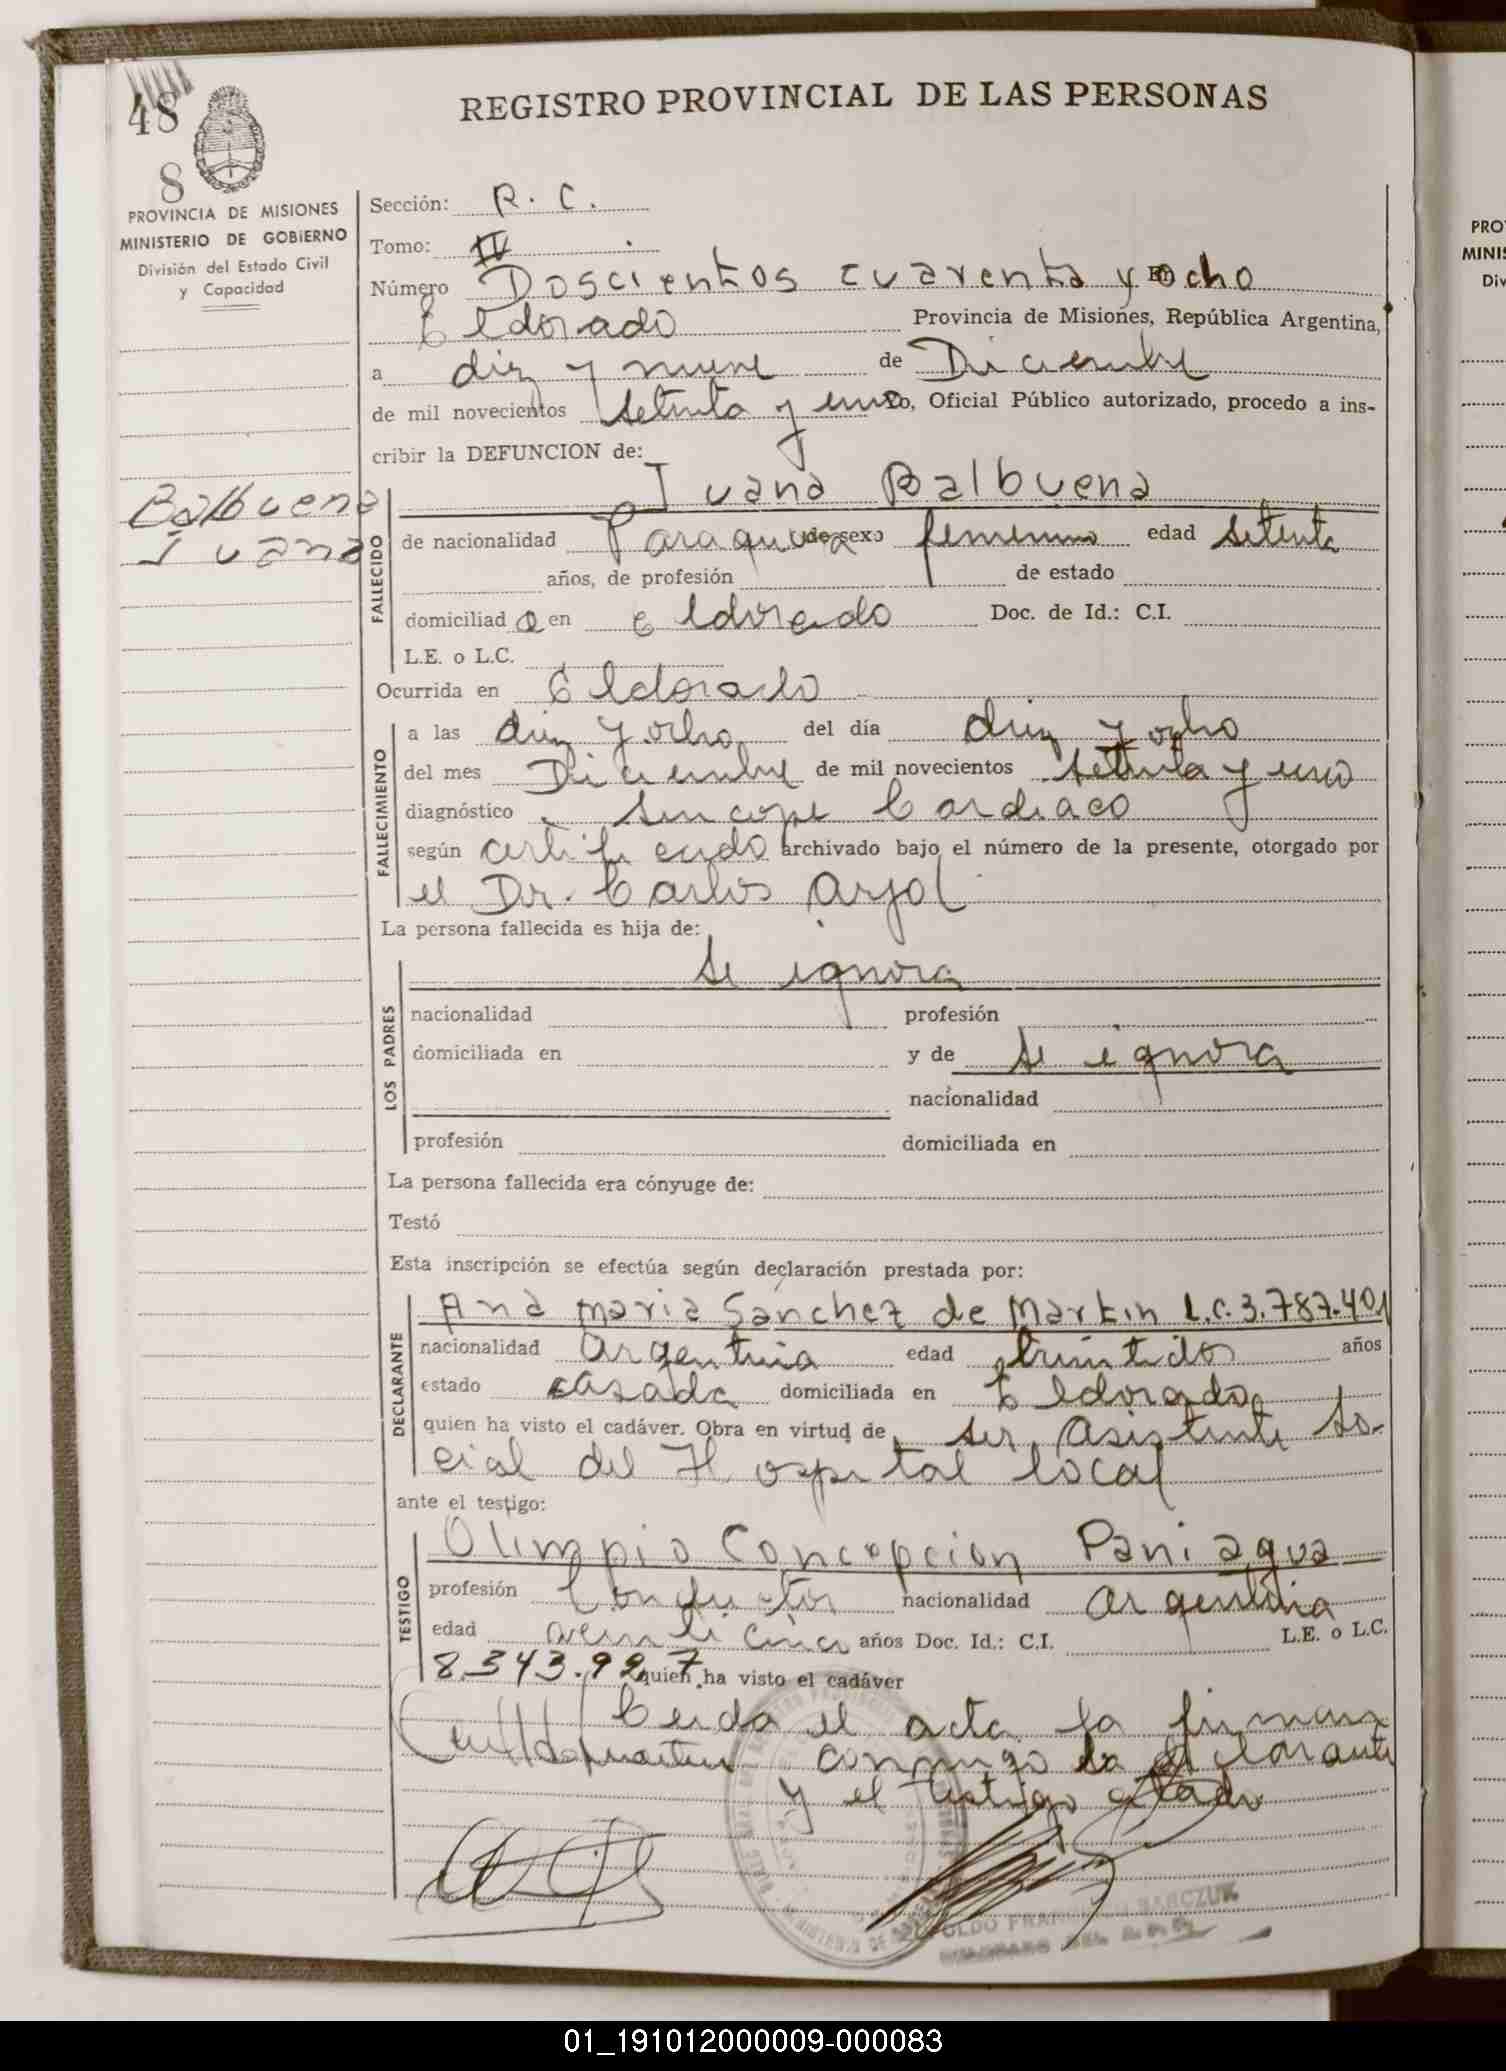 48
8
REGISTRO PROVINCIAL DE LAS PERSONAS
PROVINCIA DE MISIONES
MINISTERIO DE GOBIERNO
División del Estado Civil
y Capacidad
Sección: R. C.
Tomo: IV
Número Doscientos cuarenta y ocho En
Eldorado Provincia de Misiones, República Argentina,
a diez y nueve de Diciembre
de mil novecientos setenta y uno Yo, Oficial Público autorizado, procedo a ins-
cribir la DEFUNCION de:
Balbuena
Juana
FALLECIDO
Juana Balbuena
de nacionalidad Paraguaya de sexo femenino edad setenta
años, de profesión de estado
domiciliad a en Eldorado Doc. de Id.: C.I.
L.E. o L.C.
Ocurrida en Eldorado
FALLECIMIENTO
a las diez y ocho del día diez y ocho
del mes Diciembre de mil novecientos setenta y uno
diagnóstico sincope Cardiaco
según certificado archivado bajo el número de la presente, otorgado por
el Dr. Carlos Arjol
La persona fallecida es hija de:
LOS PADRES
se ignora
nacionalidad profesión
domiciliada en y de se ignora
nacionalidad
profesión domiciliada en
La persona fallecida era cónyuge de:
Testó
Esta inscripción se efectúa según declaración prestada por:
DECLARANTE
Ana maria Sanchez de Martin L.C. 3.787.401
nacionalidad Argentina edad treintidos años
estado casada domiciliada en Eldorado
quien ha visto el cadáver. Obra en virtud de ser Asistente So-
cial del Hospital local
ante el testigo:
TESTIGO
Olimpio Concepcion Paniagua
profesión Conductor nacionalidad Argentina
edad veinticinco años Doc. Id.: C.I. L.E. o L.C.
8.343.997 quien ha visto el cadáver
Leida el acta la firman
conmigo la declarante
y el testigo citado
01_191012000009-000083